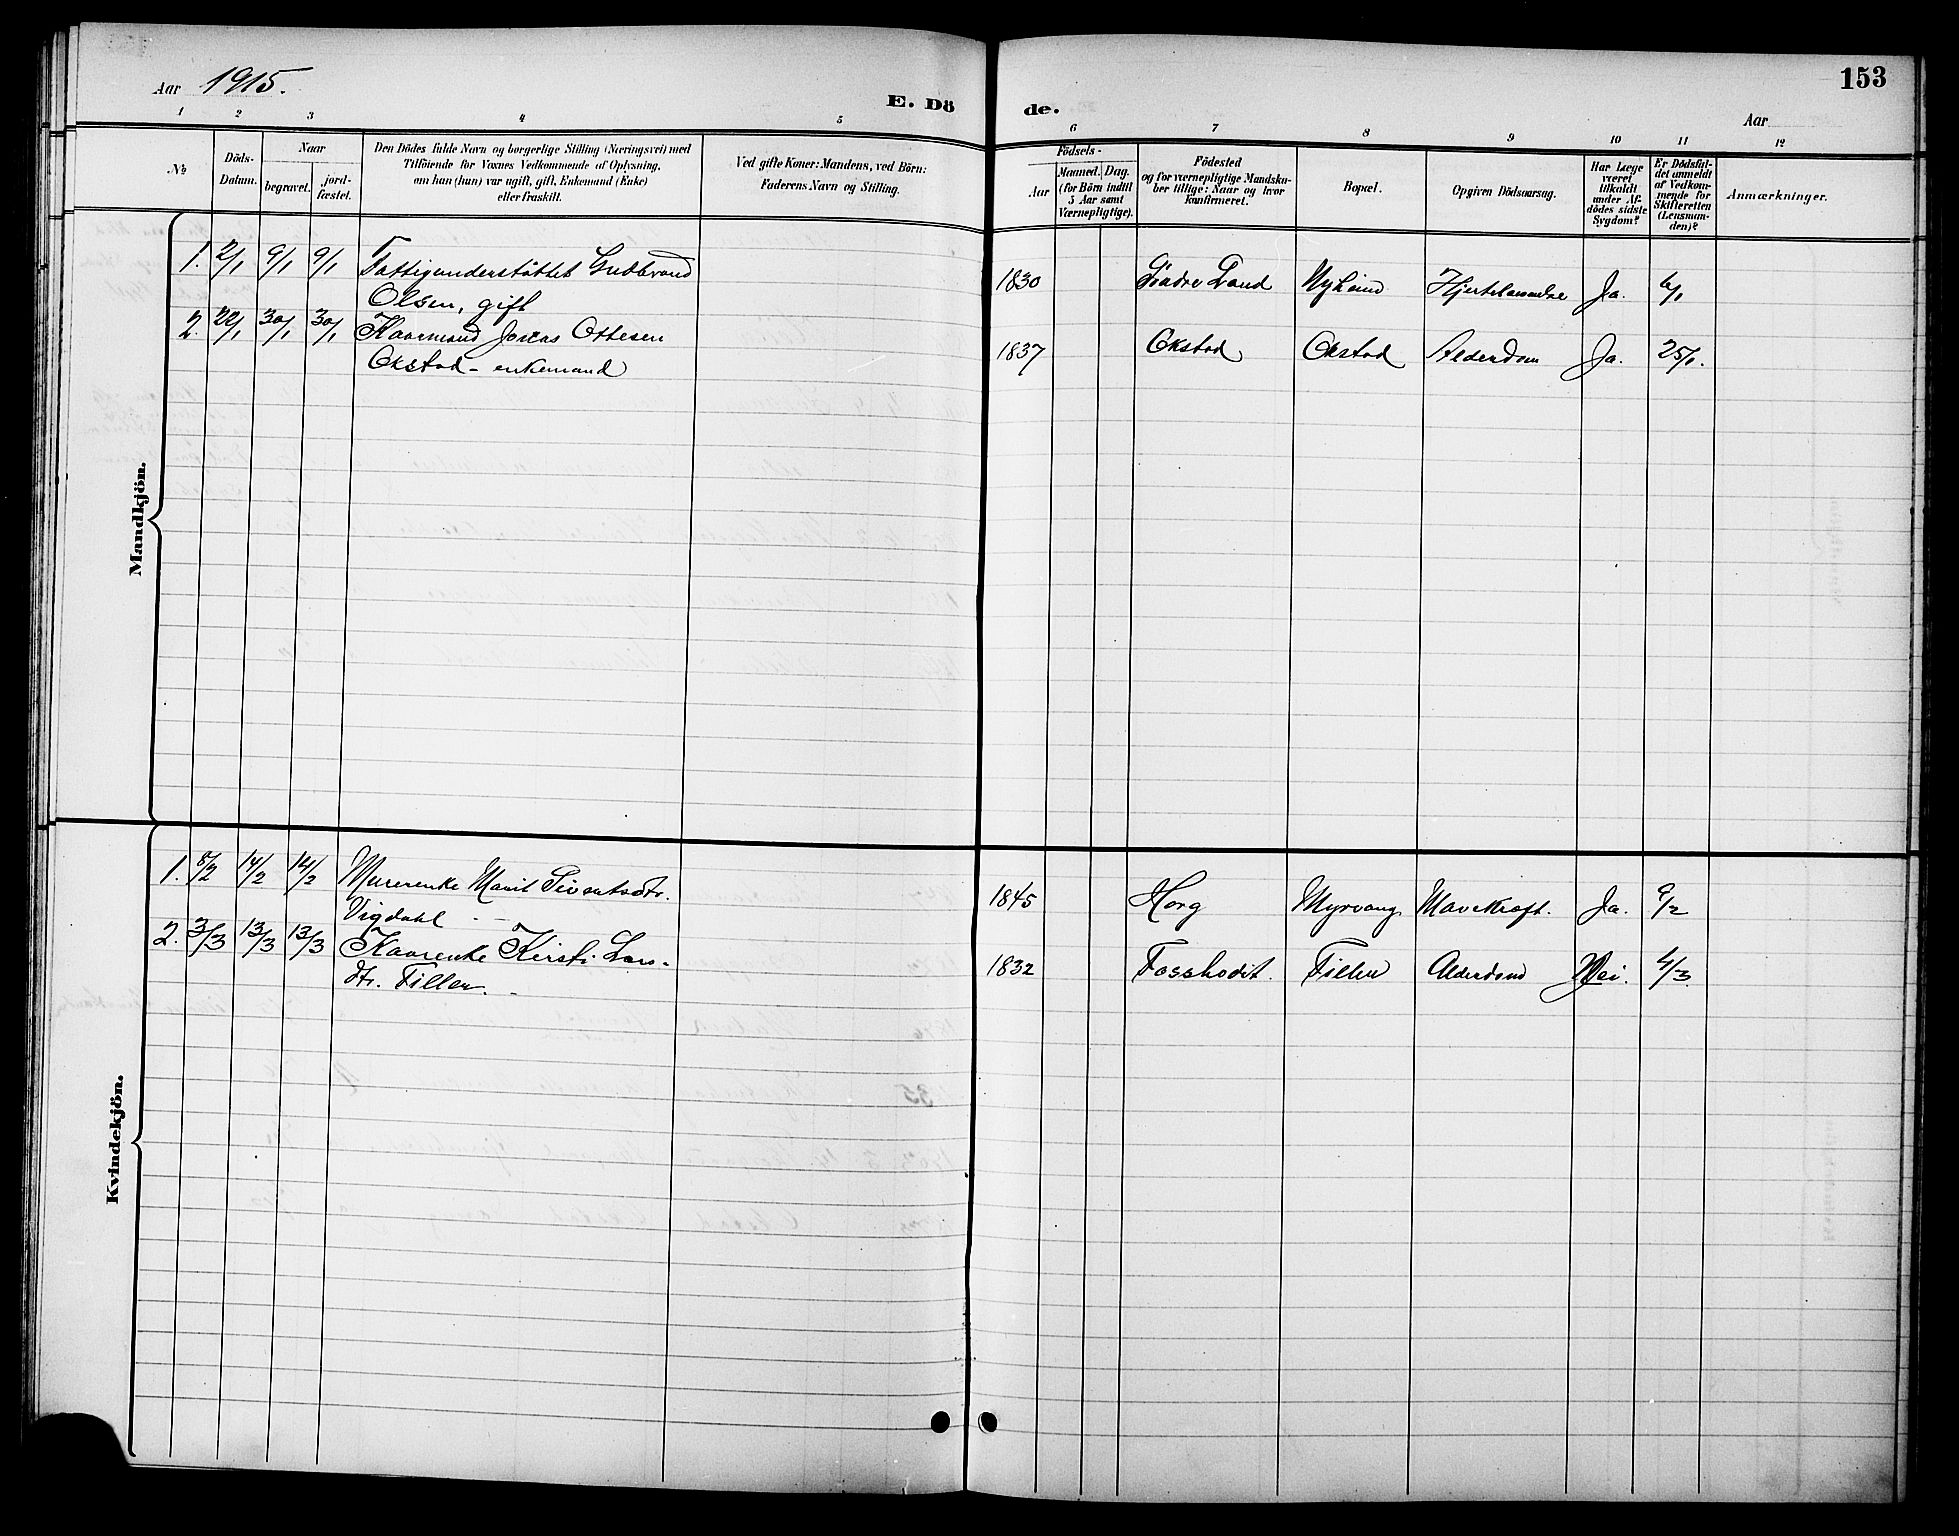 Aar 1915.
E. Dö
de.
153
Aar
1 2 3 4 5 6 7 8 9 10 11 12
№
Döds-
Datum.
Naar
begravet.
jord-
fæstet.
Den Dödes fulde Navn og borgerlige Stilling (Næringsvei) med
Tilföiende for Voxnes Vedkommende af Oplysning,
om han (hun) var ugift, gift, Enkemand (Enke)
eller fraskilt.
Ved gifte Koner: Mandens, ved Börn:
Faderens Navn og Stilling.
Födsels-
Aar
Maaned. Dag.
(for Börn indtil
5 Aar samt
Værnepligtige).
Födested
og for værnepligtige Mandska-
ber tillige: Naar og hvor
konfirmeret.
Bopæl.
Opgiven Dödsaarsag.
Har Læge
været
tilkaldt
under Af-
dödes sidste
Sygdom?
Er Dödsfal-
det anmeldt
af Vedkom-
mende for
Skifteretten
(Lensman-
den)?
Anmærkninger.
Mandkjön.
1. 2/1 9/1 9/1 Fattigunderstöttet Gudbrand
Olsen, gift
1830 Söndre Land Nyheim Ja. 6/1
2. 22/1 30/1 30/1 Kaarmand Jonas Ottesen
Okstad - enkemand
1837 Okstad Okstad Alderdom Ja. 25/1.
Kvindekjön.
1. 8/2 14/2 14/2 Murerenke Marit Siventsdtr.
Vigdahl
1845 Horg Myrvang Mavekræft. Ja. 9/2
2. 3/3 13/3 13/3 Kaarenke Kirsti Lars-
dtr. Tiller.
1832 Tiller Alderdom Nei. 4/3.